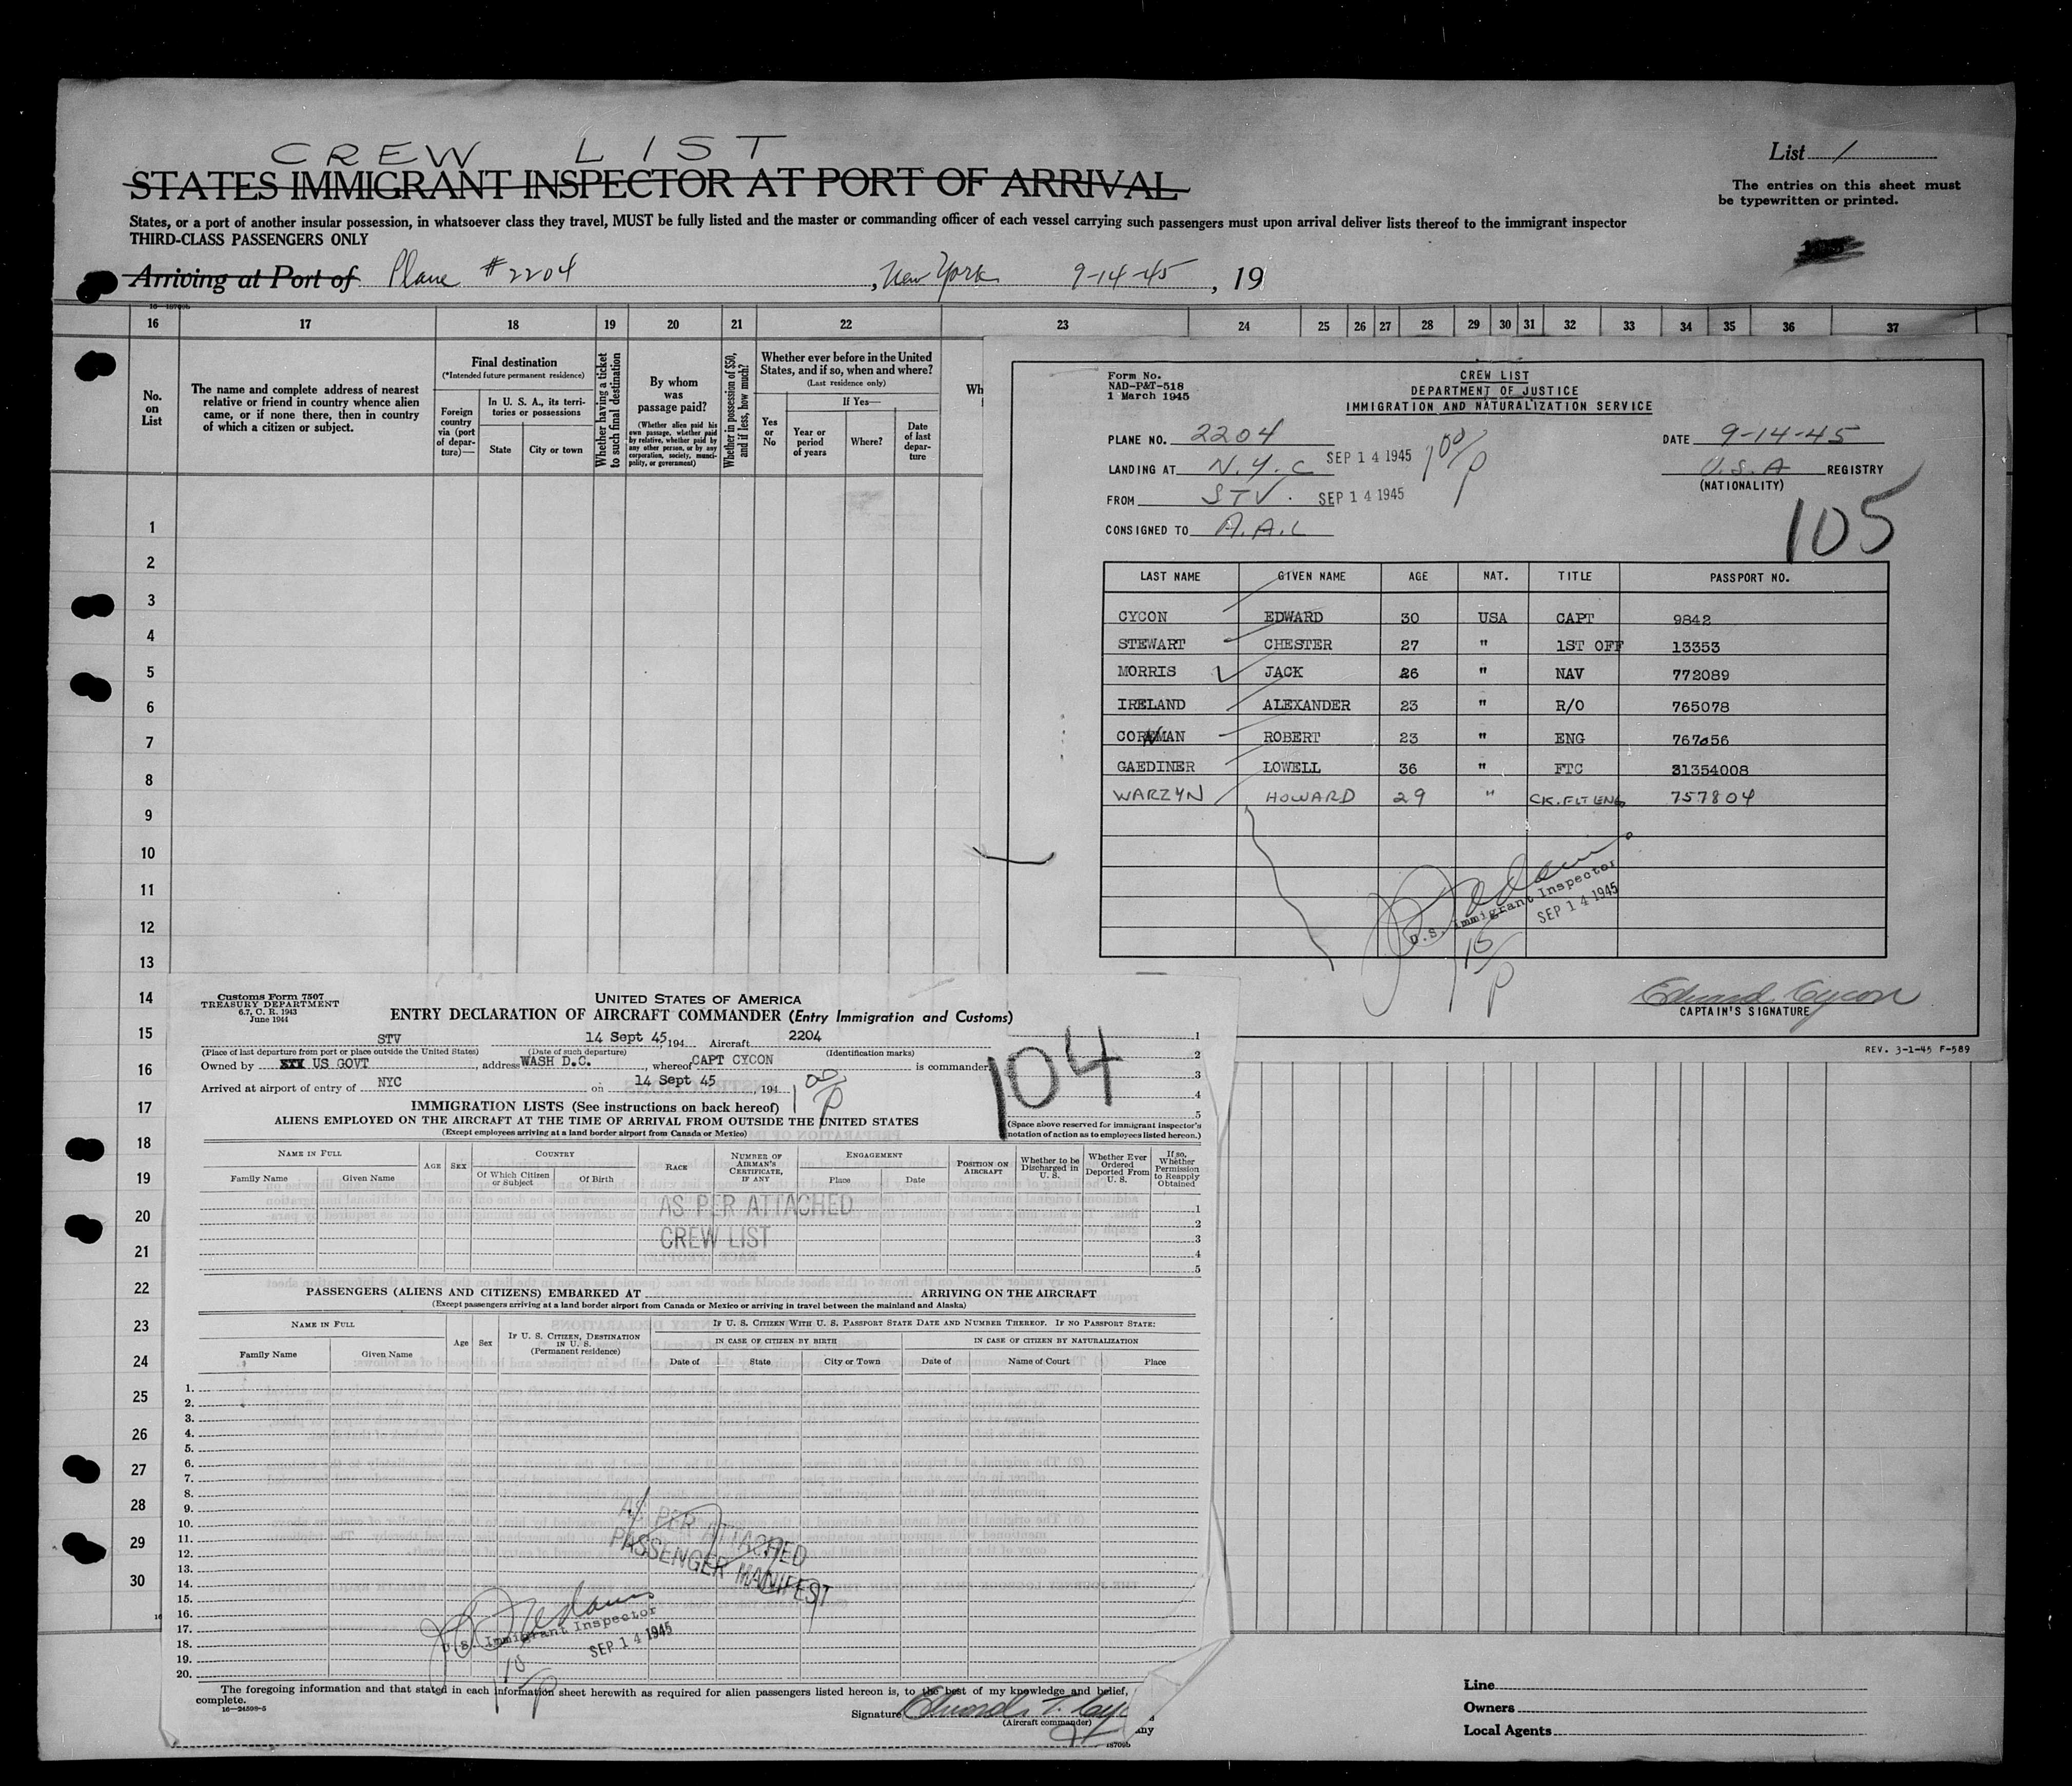 CREW LIST
STATES IMMIGRANT INSPECTOR AT PORT OF ARRIVAL
List 1
The entries on this sheet must
be typewritten or printed.
States, or a port of another insular possession, in whatsoever class they travel, MUST be fully listed and the master or commanding officer of each vessel carrying such passengers must upon arrival deliver lists thereof to the immigrant inspector
THIRD-CLASS PASSENGERS ONLY
Arriving at Port of Plane #2204, New York 9-14-45, 19
16 17 18 19 20 21 22 23 24 25 26 27 28 29 30 31 32 33 34 35 36 37
No.
on
List
The name and complete address of nearest
relative or friend in country whence alien
came, or if none there, then in country
of which a citizen or subject.
Final destination
(*Intended future permanent residence)
Foreign
country
via (port
of depar-
ture)—
In U. S. A., its terri-
tories or possessions
State
City or town
Whether having a ticket
to such final destination
By whom
was
passage paid?
(Whether alien paid his
own passage, whether paid
by relative, whether paid by
any other person, or by any
corporation, society, munici-
pality, or government)
Whether in possession of $50,
and if less, how much?
Whether ever before in the United
States, and if so, when and where?
(Last residence only)
Yes
or
No
If Yes—
Year or
period
of years
Where?
Date
of last
depar-
ture
Wh
1
2
3
4
5
6
7
8
9
10
11
12
13
14
15
16
17
18
19
20
21
22
23
24
25
26
27
28
29
30
Form No.
NAD-P&T-518
1 March 1945
CREW LIST
DEPARTMENT OF JUSTICE
IMMIGRATION AND NATURALIZATION SERVICE
PLANE NO. 2204
DATE 9-14-45
LANDING AT N.Y.C SEP 14 1945 1 00/P
U.S.A REGISTRY
(NATIONALITY)
FROM STV. SEP 14 1945
105
CONSIGNED TO A.A.L
LAST NAME GIVEN NAME AGE NAT. TITLE PASSPORT NO.
CYCON EDWARD 30 USA CAPT 9842
STEWART CHESTER 27 " 1ST OFF 13353
MORRIS JACK 26 " NAV 772089
IRELAND ALEXANDER 23 " R/O 765078
CORNMAN ROBERT 23 " ENG 767056
GAEDINER LOWELL 36 " FTC 31354008
WARZYN HOWARD 29 " CK. FLT ENG 757804
U.S. Immigrant Inspector
SEP 14 1945
Edward Cycon
CAPTAIN'S SIGNATURE
REV. 3-1-45 F-589
Customs Form 7507
TREASURY DEPARTMENT
6.7, C. R. 1943
June 1944
UNITED STATES OF AMERICA
ENTRY DECLARATION OF AIRCRAFT COMMANDER (Entry Immigration and Customs)
STV 14 Sept 45, 194 Aircraft 2204
(Place of last departure from port or place outside the United States) (Date of such departure) (Identification marks)
Owned by US GOVT, address WASH D.C., whereof CAPT CYCON is commander
Arrived at airport of entry of NYC on 14 Sept 45, 194 1 00/P
104
1
2
3
4
5
(Space above reserved for immigrant inspector's
notation of action as to employees listed hereon.)
IMMIGRATION LISTS (See instructions on back hereof)
ALIENS EMPLOYED ON THE AIRCRAFT AT THE TIME OF ARRIVAL FROM OUTSIDE THE UNITED STATES
(Except employees arriving at a land border airport from Canada or Mexico)
NAME IN FULL
Family Name Given Name
AGE SEX
COUNTRY
Of Which Citizen
or Subject
Of Birth
RACE
NUMBER OF
AIRMAN'S
CERTIFICATE,
IF ANY
ENGAGEMENT
Place Date
POSITION ON
AIRCRAFT
Whether to be
Discharged in
U. S.
Whether Ever
Ordered
Deported From
U. S.
If so,
Whether
Permission
to Reapply
Obtained
AS PER ATTACHED
CREW LIST
1
2
3
4
5
PASSENGERS (ALIENS AND CITIZENS) EMBARKED AT ARRIVING ON THE AIRCRAFT
(Except passengers arriving at a land border airport from Canada or Mexico or arriving in travel between the mainland and Alaska)
NAME IN FULL
Family Name Given Name
Age Sex
IF U. S. CITIZEN, DESTINATION
IN U. S.
(Permanent residence)
IF U. S. CITIZEN WITH U. S. PASSPORT STATE DATE AND NUMBER THEREOF. IF NO PASSPORT STATE:
IN CASE OF CITIZEN BY BIRTH
IN CASE OF CITIZEN BY NATURALIZATION
Date of State City or Town Date of Name of Court Place
1.
2.
3.
4.
5.
6.
7.
8.
9.
10.
11.
12.
13.
14.
15.
16.
17.
18.
19.
20.
AS PER ATTACHED
PASSENGER MANIFEST
U.S. Immigrant Inspector
SEP 14 1945
The foregoing information and that stated in each information sheet herewith as required for alien passengers listed hereon is, to the best of my knowledge and belief,
complete.
16—24598-5
Signature
(Aircraft commander)
any
Line
Owners
Local Agents